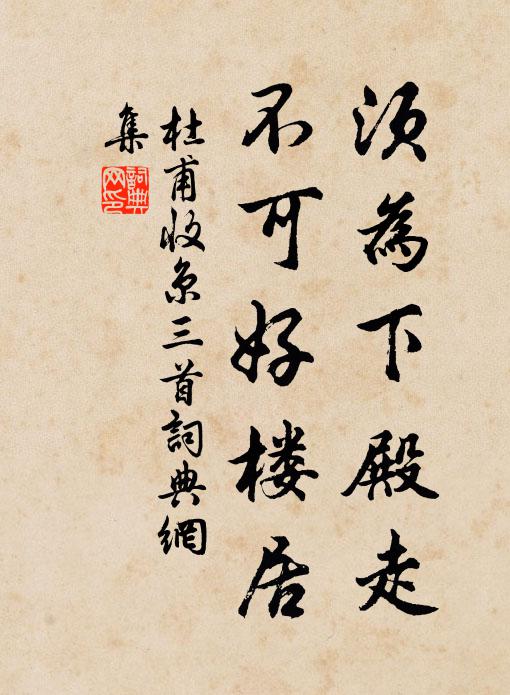 须為下殿走
不可好楼居
杜甫收京三首詞典網
集
詞典
网印